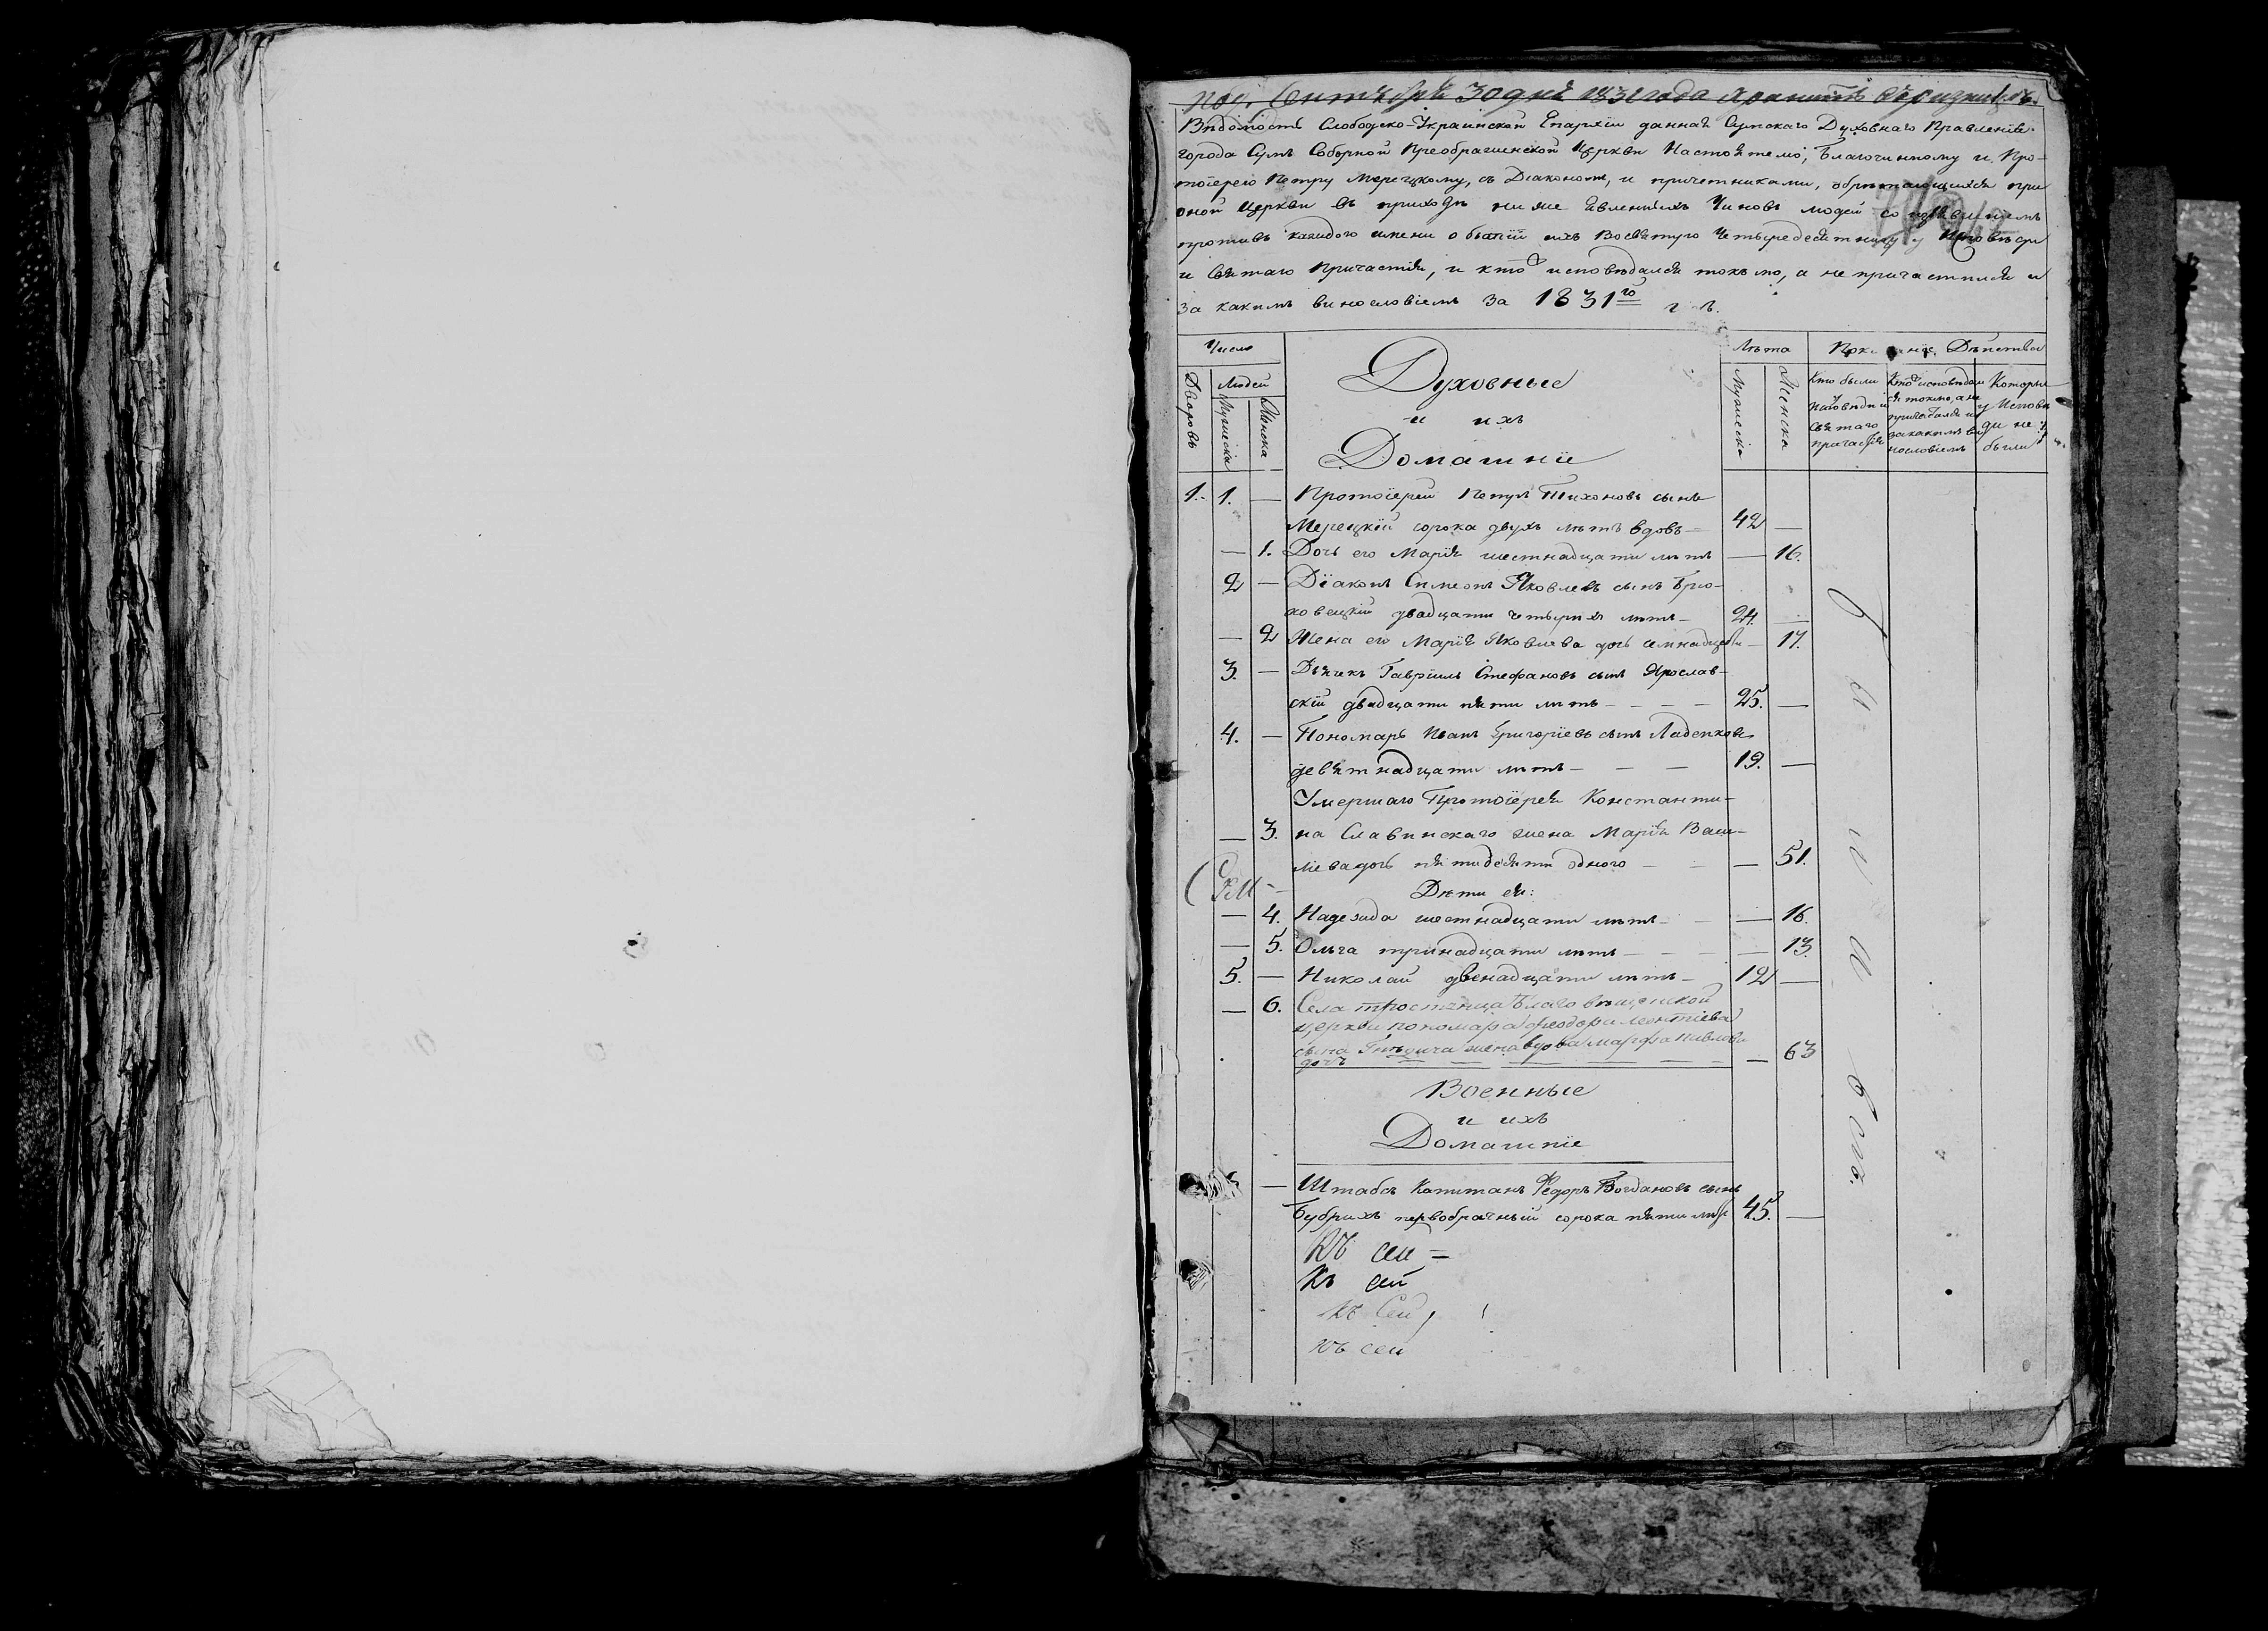 Сентября 30 дня 1831 года
Вѣдомость Слободско-Украинской Епархїи данная Сумскаго Духовнаго Правленїя
города Сумъ Соборной Преображенской Церкви Настоятелю, Благочинному и Про-
тоїерею Петру Мерецкому, съ Дїакономъ, и причетниками, обрѣтающихся при
оной Церкви въ приходѣ ниже явленныхъ Чиновъ людей со изъявленїемъ
противъ каждого имени о бытїи ихъ во святую Четыредесятницу у Исповѣди
и Святаго Причастїя, и кто исповѣдался токъмо, а не причастился и
за какимъ винословїемъ за 1831го г.
Число
Лѣта
Показанїе Дѣйства
Дворовъ
Людей
Мужеска
Женска
Духовные
и ихъ
Домашнїе
Мужеска
Женска
Кто были у Исповѣди и Святаго причастїя
Кто исповѣдался токмо, а не причащался и за какимъ винословїемъ
Которые у Исповѣди не были
1. 1. — Протоїерей Петръ Тихоновъ сынъ
Мерецкїй сорока двухъ лѣтъ вдовъ — 42 —
— 1. Дочь его Марїя шестнадцати лѣтъ — 16.
2 — Дїаконъ Симеонъ Яковлевъ сынъ Брю-
ховецкїй двадцати четырехъ лѣтъ — 24. —
— 2 Жена его Марїя Яковлева дочь семнадцати — 17.
3. — Дьячекъ Гаврїилъ Стефановъ сынъ Ярослав-
скїй двадцати пяти лѣтъ — — — — 25. —
4. — Пономарь Иванъ Григорїевъ сынъ Ладенковъ
девятнадцати лѣтъ — — — 19. —
Умершаго Протоїерея Константи-
— 3. на Славинскаго жена Марїя Васи-
лїева дочь пятидесяти одного — — — 51.
Дѣти ея:
— 4. Надежда шестнадцати лѣтъ — — — 16.
— 5. Ольга тринадцати лѣтъ — — — — 13.
5. — Николай двенадцати лѣтъ — 12 —
— 6. Села Тростянца Благовѣщенской
церкви пономара Феодора Леонтїева
сына Гнѣдича жена вдова Марфа Павлова
дочь — — — — — — 63
Были
Военные
и ихъ
Домашнїе
— Штабсъ Капитанъ Федоръ Богдановъ сынъ
Бубрихъ первобрачный сорока пяти лѣтъ 45. —
Къ сей =
Къ сей
Къ Сей
Къ сей